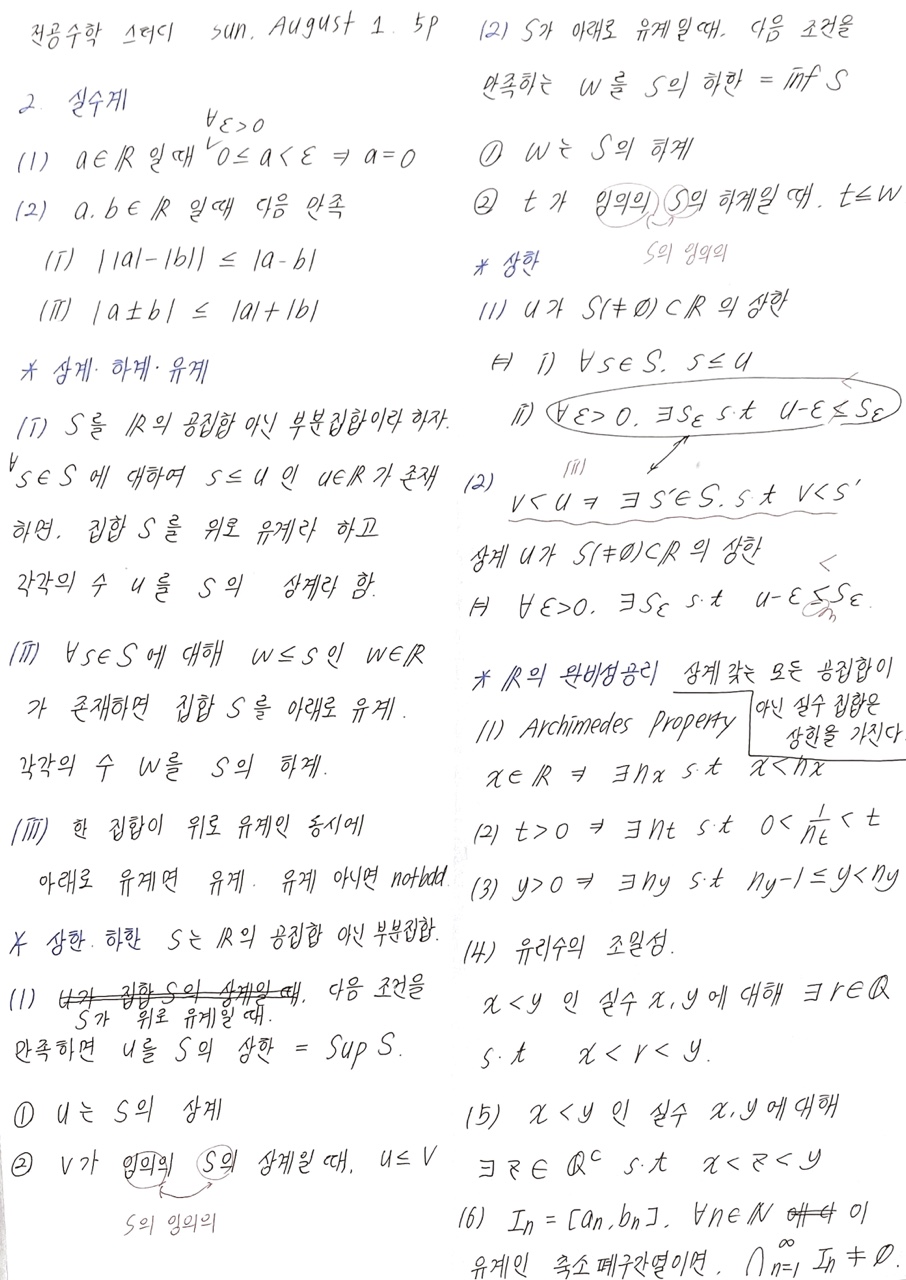 전공수학 스터디 sun. August 1. 5p
2. 실수계
∀ε>0
(1) a∈ℝ 일때 0≤a<ε ⇒ a=0
(2) a.b∈ℝ 일때 다음 만족
(i) ||a|-|b|| ≤ |a-b|
(ii) |a±b| ≤ |a|+|b|
* 상계·하계·유계
(i) S를 ℝ의 공집합 아닌 부분집합이라 하자.
∀s∈S 에 대하여 s≤u 인 u∈ℝ가 존재
하면, 집합 S를 위로 유계라 하고
각각의 수 u를 S의 상계라 함.
(ii) ∀s∈S에 대해 w≤s인 w∈ℝ
가 존재하면 집합 S를 아래로 유계.
각각의 수 w를 S의 하계.
(iii) 한 집합이 위로 유계인 동시에
아래로 유계면 유계. 유계 아니면 not bdd.
* 상한.하한 S는 ℝ의 공집합 아닌 부분집합.
(1) u가 집합 S의 상계일때, 다음 조건을
S가 위로 유계일때.
만족하면 u를 S의 상한 = Sup S.
① u는 S의 상계
② v가 임의의 S의 상계일때, u≤v
S의 임의의
(2) S가 아래로 유계일때. 다음 조건을
만족하는 w를 S의 하한 = inf S
① w는 S의 하계
② t가 임의의 S의 하계일때. t≤w
S의 임의의
* 상한
(1) u가 S(≠∅)⊂ℝ의 상한
⇔ i) ∀s∈S. s≤u
<
ii) ∀ε>0. ∃Sε s.t u-ε≤Sε
(iii)
(2) v<u ⇒ ∃s'∈S. s.t v<s'
상계 u가 S(≠∅)⊂ℝ의 상한
<
⇔ ∀ε>0. ∃Sε s.t u-ε≤Sε.
* ℝ의 완비성공리 상계 갖는 모든 공집합이
아닌 실수 집합은
상한을 가진다.
(1) Archimedes Property
x∈ℝ ⇒ ∃nx s.t x<nx
(2) t>0 ⇒ ∃nt s.t 0<1/nt<t
(3) y>0 ⇒ ∃ny s.t ny-1≤y<ny
(4) 유리수의 조밀성.
x<y 인 실수 x,y에 대해 ∃r∈ℚ
s.t x<r<y.
(5) x<y 인 실수 x,y에 대해
∃z∈ℚᶜ s.t x<z<y
(6) In=[an,bn], ∀n∈ℕ 에다 이
유계인 축소폐구간열이면. ⋂_{n=1}^{∞} In ≠ ∅.